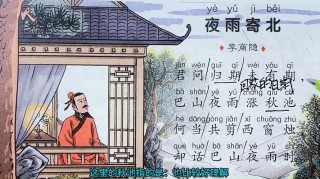 yè yǔ jì běi
夜雨寄北
李商隐
jūn wèn guī qī wèi yǒu qī
君问归期未有期
回家的日期
bā shān yè yǔ zhǎng qiū chí
巴山夜雨涨秋池
hé dāng gòng jiǎn xī chuāng zhú
何当共剪西窗烛
què huà bā shān yè yǔ shí
却话巴山夜雨时
这里的秋池指的是，也比较好理解